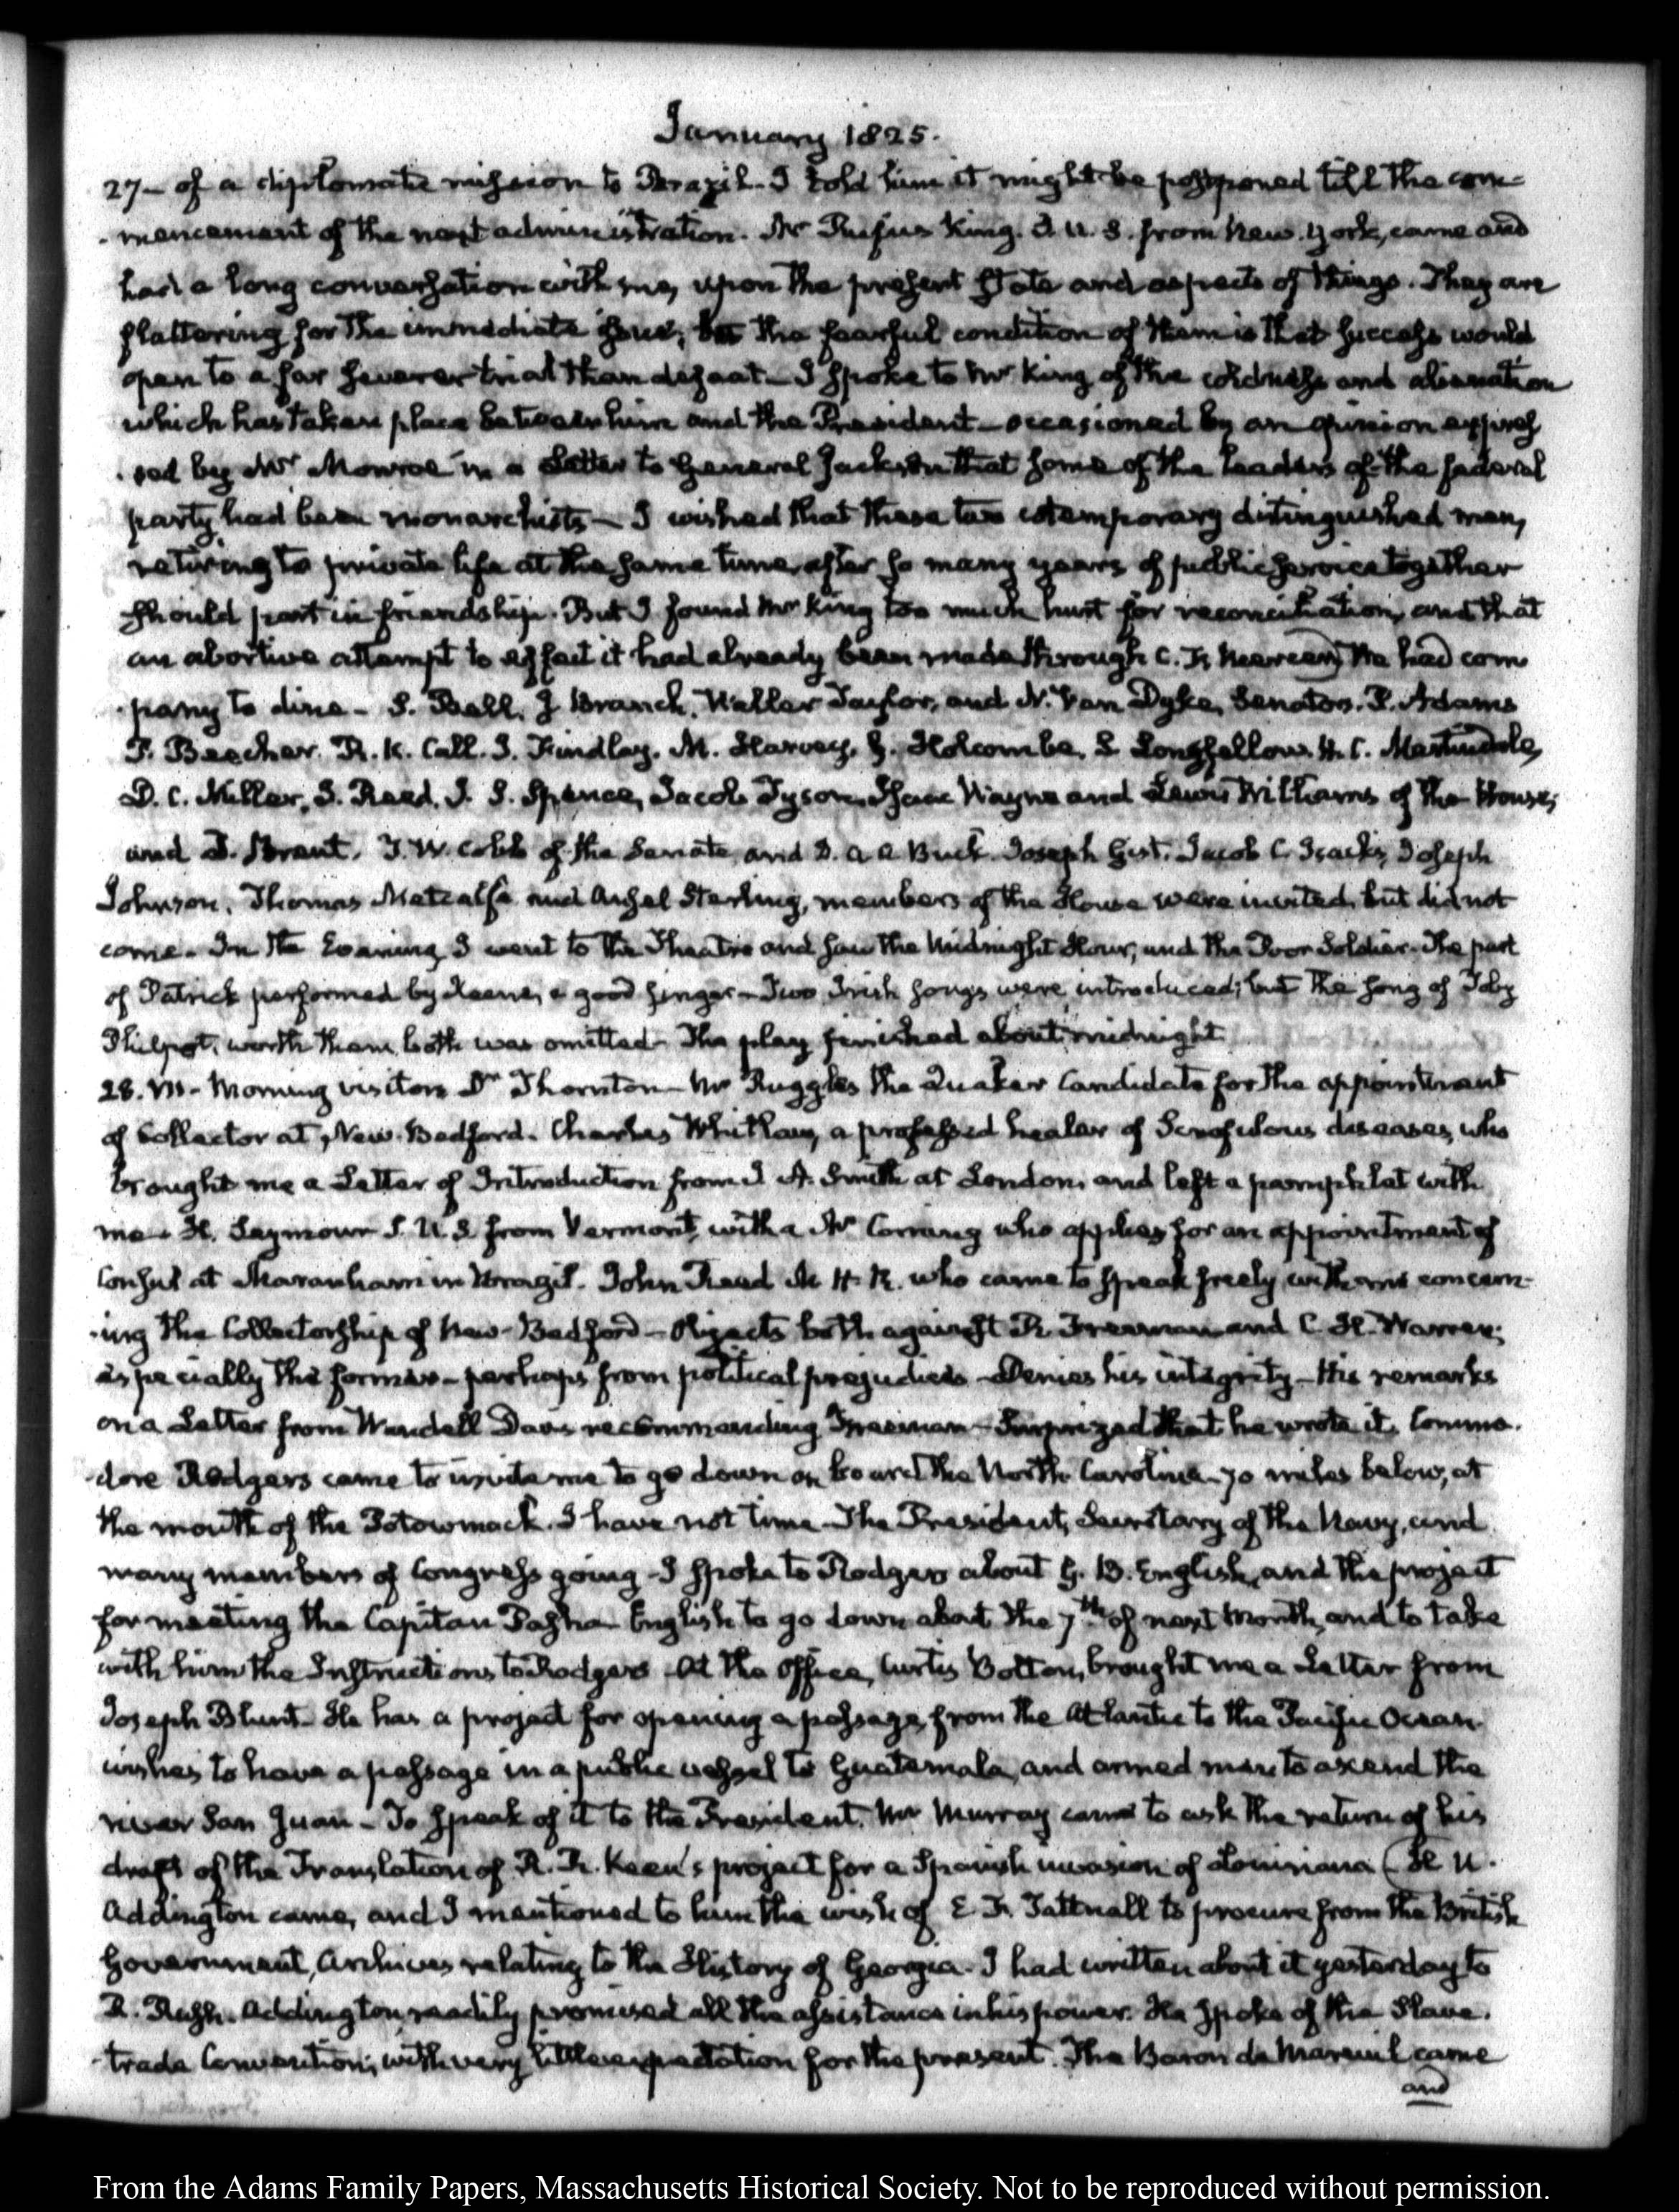 January 1825.
27 - of a diplomatic mission to Brazil. I told him it might be postponed till the com-
-mencement of the next administration. Mr Rufus King. S. U. S. from New-York, came and
had a long conversation with me, upon the present state and aspects of things. They are
flattering for the immediate issue; but the fearful condition of them is that success would
open to a far severer trial than defeat - I spoke to Mr King of the coldness and alienation
which has taken place between him and the President - occasioned by an opinion expres
-sed by Mr Monroe in a Letter to General Jackson that some of the leaders of the federal
party had been monarchists - I wished that these two cotemporary distinguished men,
retiring to private life at the same time, after so many years of public service together
should part in friendship. But I found Mr King too much hurt for reconciliation, and that
an abortive attempt to effect it had already been made through C. F. Mercer) We had com
-pany to dine - S. Bell, J Branch, Waller Taylor, and N. Van Dyke, Senators. P. Adams
P. Beecher. R. K. Call. J. Findlay. M. Harvey, G. Holcombe, S Longfellow. H. C. Martindale,
D. C. Miller, J. Reed, J. S. Spence, Jacob Tyson, Isaac Wayne and Lewis Williams of the House;
and J. Brent. T. W. Cobb of the Senate, and D. A A Buck. Joseph Gist. Jacob C. Isacks, Joseph
Johnson, Thomas Metcalfe and Ansel Sterling, members of the House were invited, but did not
come. In the Evening I went to the Theatre and saw the Midnight Hour, and the Poor Soldier. The part
of Patrick performed by Keene, a good singer - Two Irish songs were introduced; but the song of Toby
Philpot, worth them both was omitted. The play finished about midnight.
28. VI. Morning visitors Dr Thornton - Mr Ruggles the Quaker Candidate for the appointment
of Collector at New-Bedford. Charles Whitlaw, a professed healer of Scrofulous diseases, who
brought me a Letter of Introduction from J A. Smith at London, and left a pamphlet with
me. H. Seymour S. U. S. from Vermont, with a Mr Corning who applies for an appointment of
Consul at Maranham in Brazil. John Reed M. H. R. who came to speak freely with me concern-
-ing the Collectorship of New-Bedford - Objects both against R. Freeman and C. H. Warren;
especially the former - perhaps from political prejudices - Denies his integrity - His remarks
on a Letter from Wendell Davis recommending Freeman - Surprized that he wrote it. Commo-
-dore Rodgers came to invite me to go down on board the North Carolina 70 miles below, at
the mouth of the Potowmack. I have not time. The President, Secretary of the Navy, and
many members of Congress going - I spoke to Rodgers about G. B. English, and the project
for meeting the Capitan Pasha. English to go down about the 7th of next Month, and to take
with him the Instructions to Rodgers. At the Office, Curtis Bolton, brought me a Letter from
Joseph Blunt. He has a project for opening a passage from the Atlantic to the Pacific Ocean.
wishes to have a passage in a public vessel to Guatemala, and armed men to ascend the
river San Juan - To speak of it to the President. Mr Murray came to ask the return of his
draft of the Translation of R. R. Keen's project for a Spanish invasion of Louisiana (H. U.
Addington came, and I mentioned to him the wish of E. F. Tattnall to procure from the British
Government, Archives relating to the History of Georgia. I had written about it yesterday to
R. Rush. Addington readily promised all the assistance in his power. He spoke of the Slave.
-trade Convention; with very little expectation for the present. The Baron de Mareuil came
and
From the Adams Family Papers, Massachusetts Historical Society. Not to be reproduced without permission.